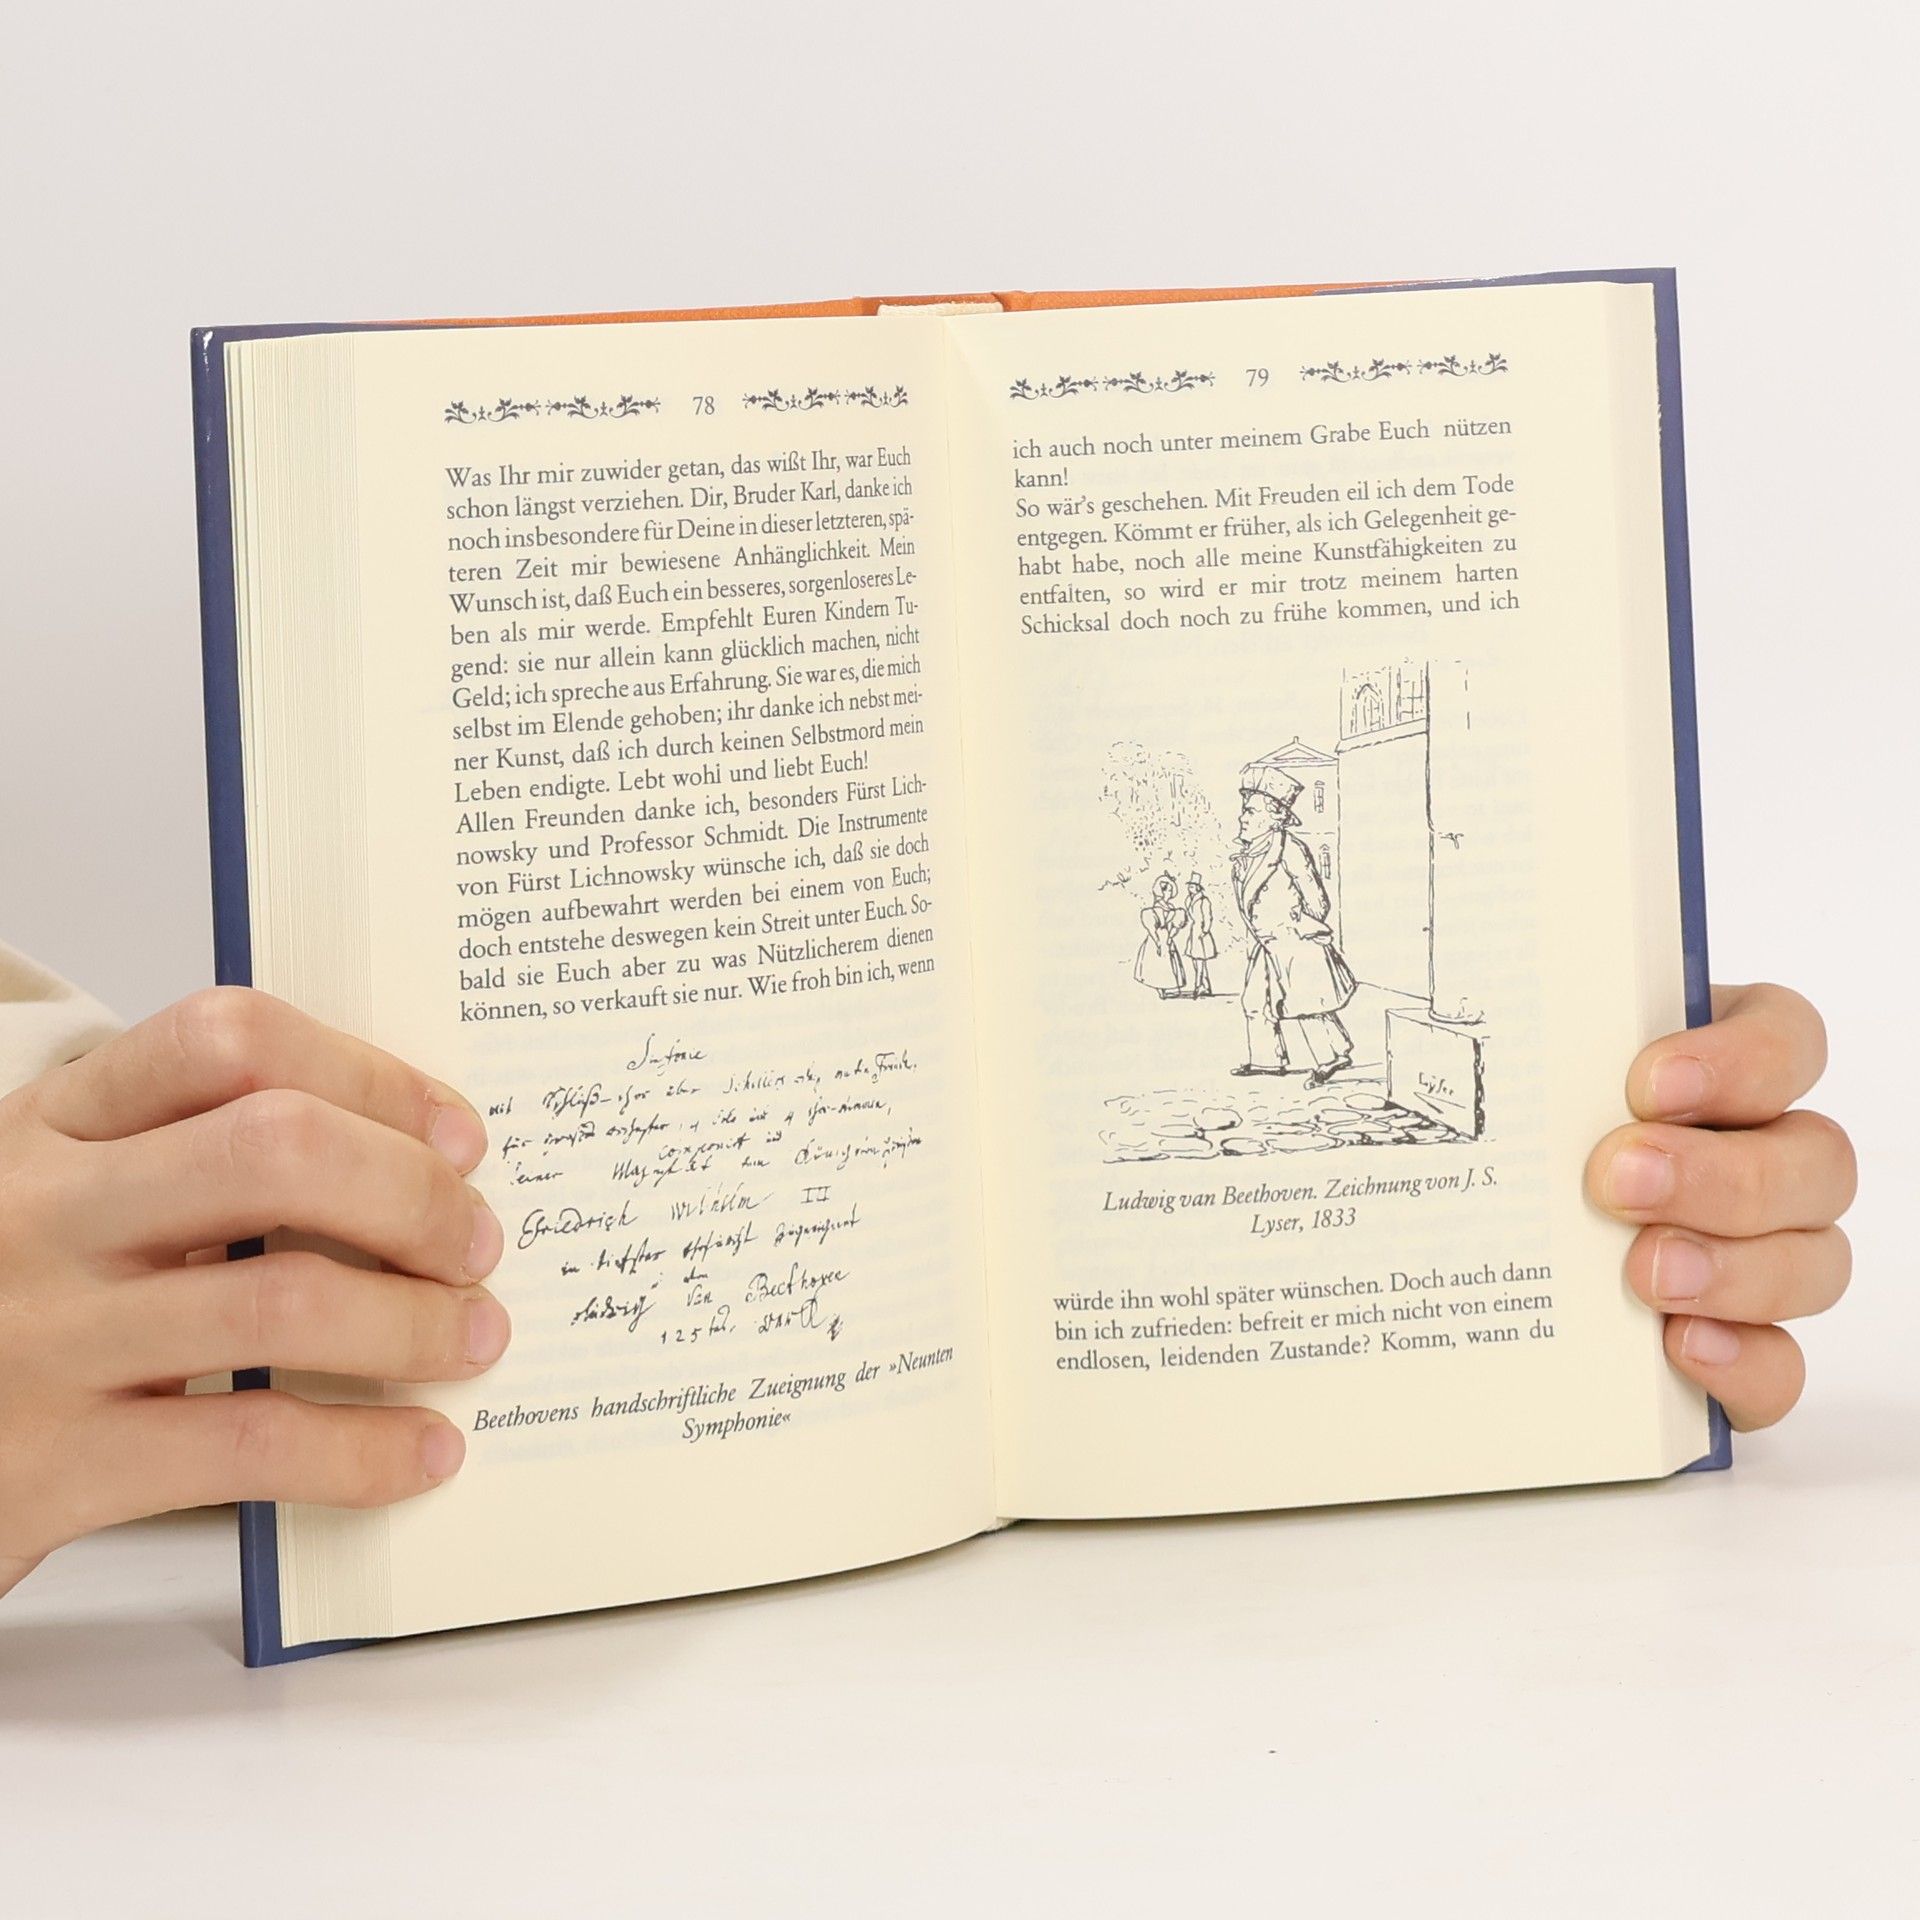 78
Was Ihr mir zuwider getan, das wißt Ihr, war Euch
schon längst verziehen. Dir, Bruder Karl, danke ich
noch insbesondere für Deine in dieser letzteren, spä-
teren Zeit mir bewiesene Anhänglichkeit. Mein
Wunsch ist, daß Euch ein besseres, sorgenloseres Le-
ben als mir werde. Empfehlt Euren Kindern Tu-
gend: sie nur allein kann glücklich machen, nicht
Geld; ich spreche aus Erfahrung. Sie war es, die mich
selbst im Elende gehoben; ihr danke ich nebst mei-
ner Kunst, daß ich durch keinen Selbstmord mein
Leben endigte. Lebt wohl und liebt Euch!
Allen Freunden danke ich, besonders Fürst Lich-
nowsky und Professor Schmidt. Die Instrumente
von Fürst Lichnowsky wünsche ich, daß sie doch
mögen aufbewahrt werden bei einem von Euch;
doch entstehe deswegen kein Streit unter Euch. So-
bald sie Euch aber zu was Nützlicherem dienen
können, so verkauft sie nur. Wie froh bin ich, wenn
Sinfonie
mit Schluß-chor über Schillers
für
componirt
seiner Majestät dem
Friedrich Wilhelm III
in tiefster
Ludwig van Beethoven
125
Beethovens handschriftliche Zueignung der »Neunten
Symphonie«
79
ich auch noch unter meinem Grabe Euch nützen
kann!
So wär's geschehen. Mit Freuden eil ich dem Tode
entgegen. Kömmt er früher, als ich Gelegenheit ge-
habt habe, noch alle meine Kunstfähigkeiten zu
entfalten, so wird er mir trotz meinem harten
Schicksal doch noch zu frühe kommen, und ich
Lyser
Ludwig van Beethoven. Zeichnung von J. S.
Lyser, 1833
würde ihn wohl später wünschen. Doch auch dann
bin ich zufrieden: befreit er mich nicht von einem
endlosen, leidenden Zustande? Komm, wann du